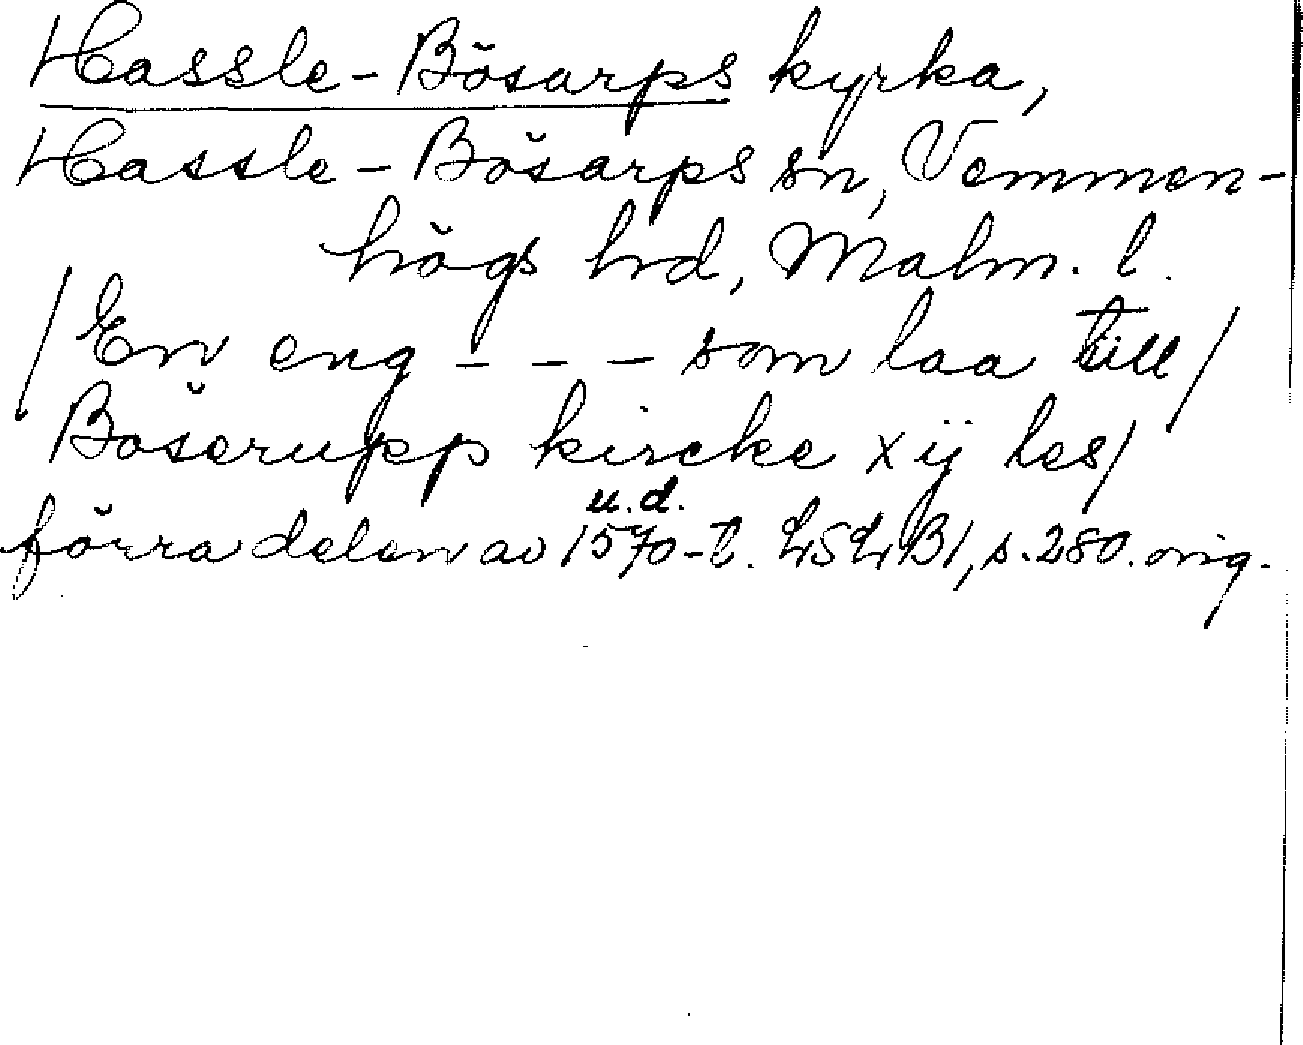 Hassle-Bösarps kyrka,
Hassle-Bösarps sn, Vemmen-
högs hd, Malm. l.
/En eng - - - som laa till/
Böserupp kircke xij les/
u.d.
förra delen av 1570-t. LSLB1, s. 280. orig.